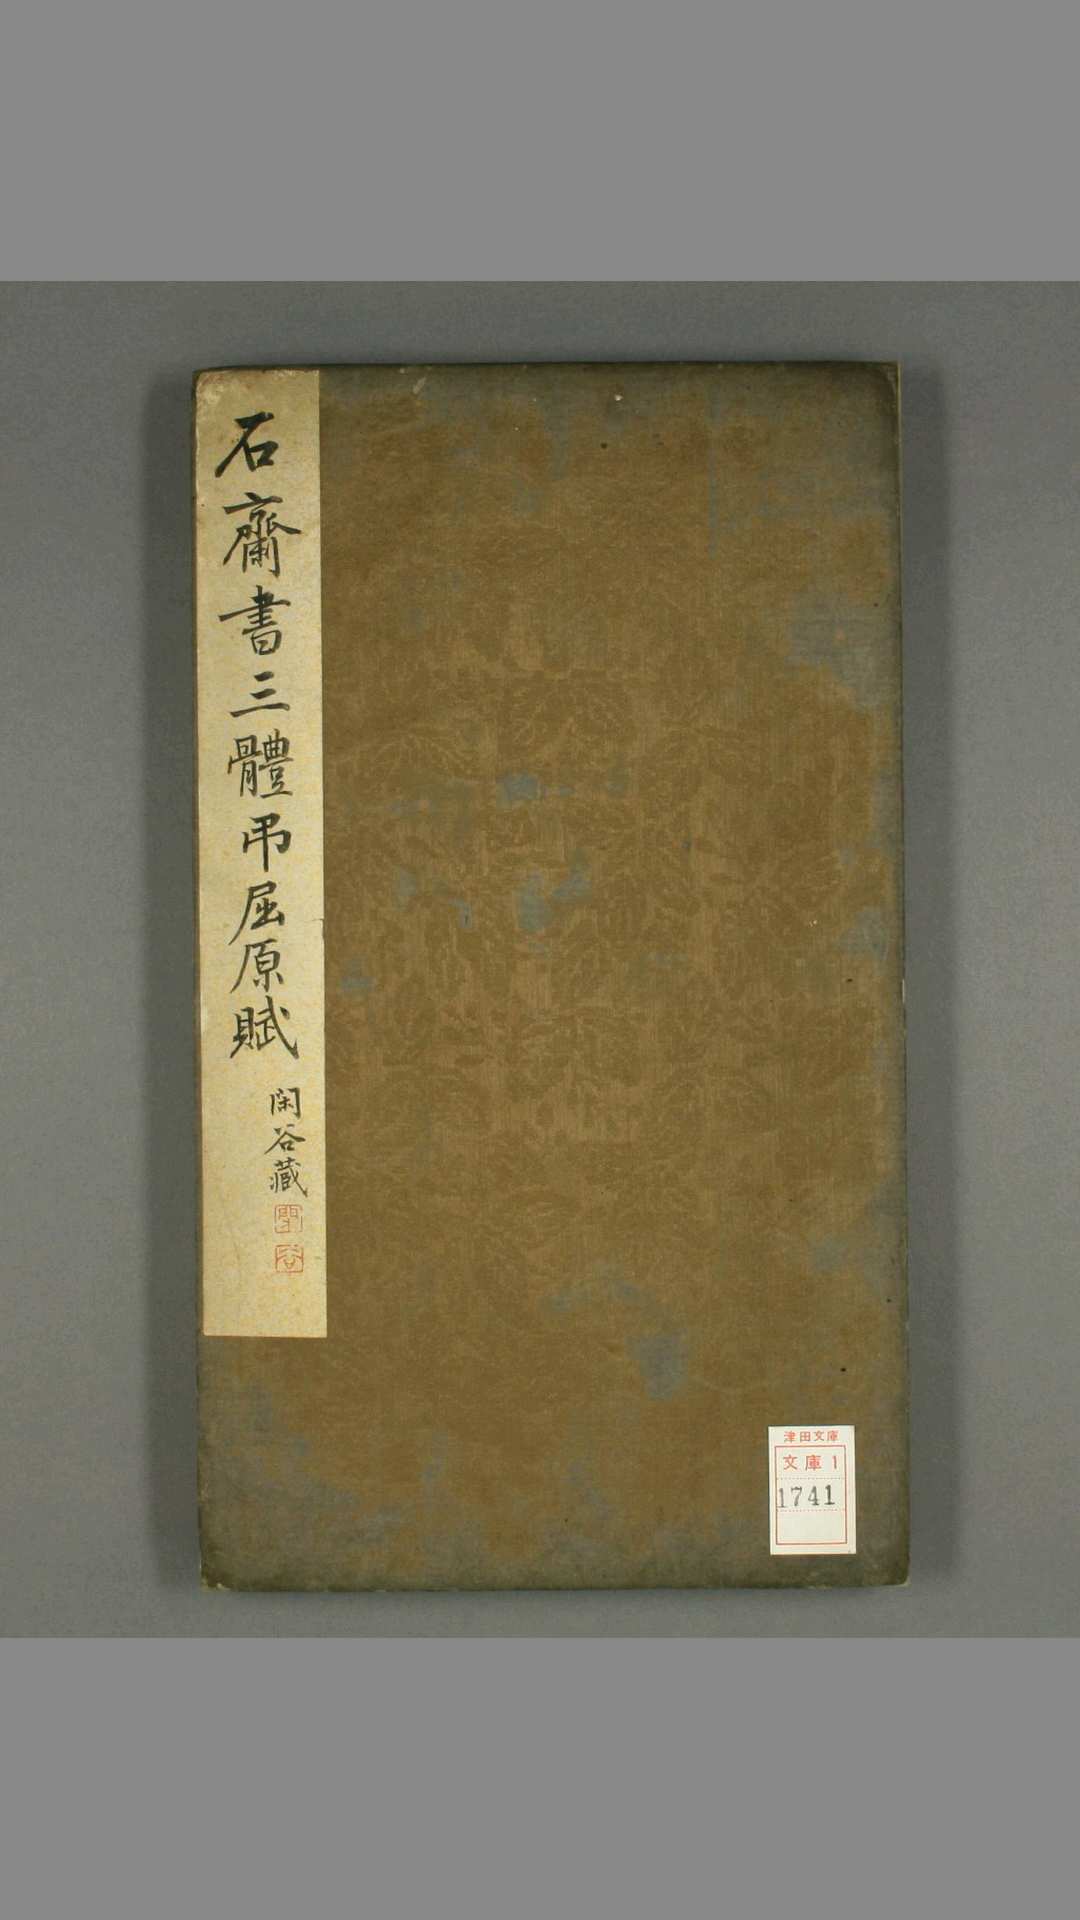 石齋書三體吊屈原賦
閑谷藏
閑
谷
津田文庫
文庫1
1741